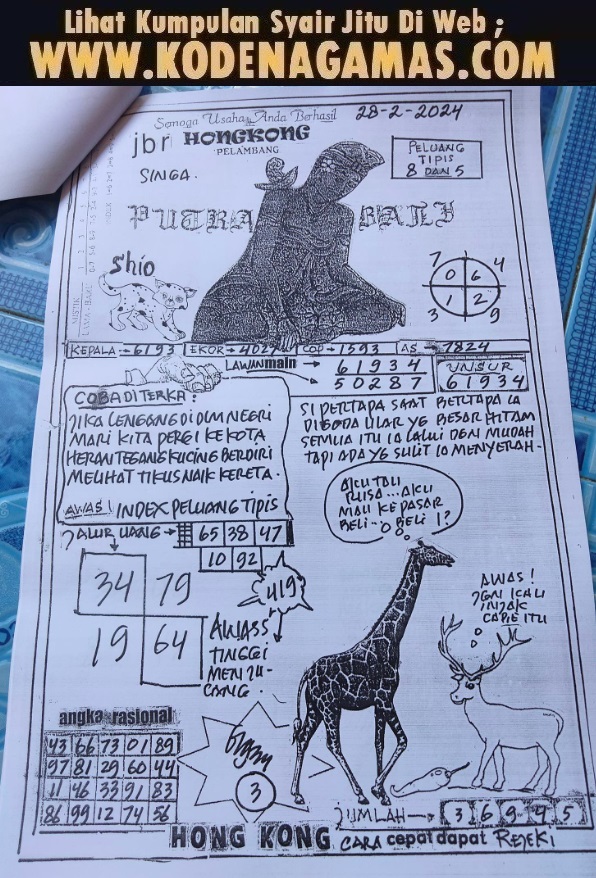 Lihat Kumpulan Syair Jitu Di Web ;
WWW.KODENAGAMAS.COM
Semoga Usaha Anda Berhasil
28-2-2024
jbr HONGKONG
PELAMBANG
PELUANG
TIPIS
8 DAN 5
SINGA.
PUTRA BALI
Shio
7 4
0 6
1 2
3 9
KEPALA → 6193 EKOR → 4027 COP → 1593 AS → 7824
LAWAN main → 61934
→ 50287
UNSUR
61934
COBA DITERKA :
JIKA LENGANG DI DLM NEGRI
MARI KITA PERGI KE KOTA
HERAN TEGANG KUCING BERDIRI
MELIHAT TIKUS NAIK KERETA.
SI PERTAPA SAAT BERTAPA IA
DIGODA ULAR YG BESAR HITAM
SEMUA ITU IA LALUI DGN MUDAH
TAPI ADA YG SULIT IA MENYERAH.
AWAS! INDEX PELUANG TIPIS
JALUR UANG → 65 38 47
10 92
34 79
19 64
419
AWASS
TINGGI
MENJU-
LANG.
AKU TALI
RUSA... AKU
MAU KE PASAR
BELI - O BELI 1?
AWAS!
INJAK
CABE ITU
angka rasional
43 66 73 01 89
97 81 29 60 44
11 46 33 91 83
86 99 12 74 56
3
JUMLAH → 3 6 9 4 5
HONG KONG CARA cepat dapat REJEKI